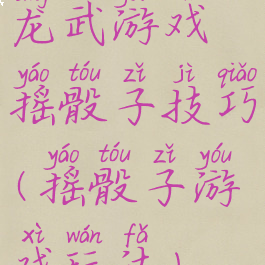 龙武游戏
yáo tóu zǐ jì qiǎo
摇骰子技巧
yáo tóu zǐ yóu
(摇骰子游
xì wán fǎ
戏玩法)